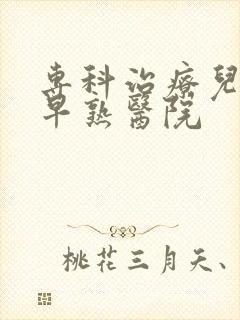 專科治療兒
早熟醫院
桃花三月天、